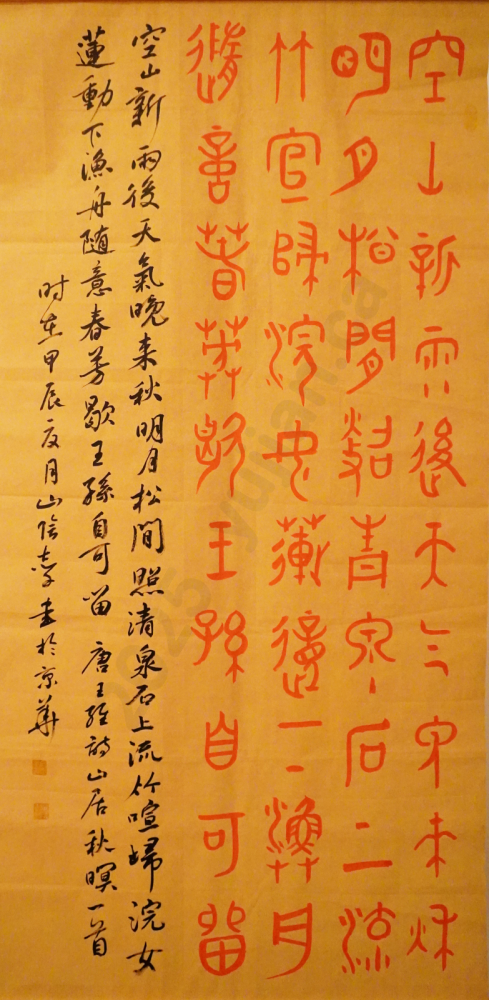 空山新雨後天气晚来秋
明月松間照青泉石上流
竹宣歸浣女蓮動下漁舟
隨意春芳歇王孫自可留
空山新雨後天氣晚来秋明月松間照清泉石上流竹喧歸浣女
蓮動下漁舟随意春芳歇王孫自可留 唐王維詩山居秋暝一首
时在甲辰夏月山陰志学書於京華
2025 yujian.ca